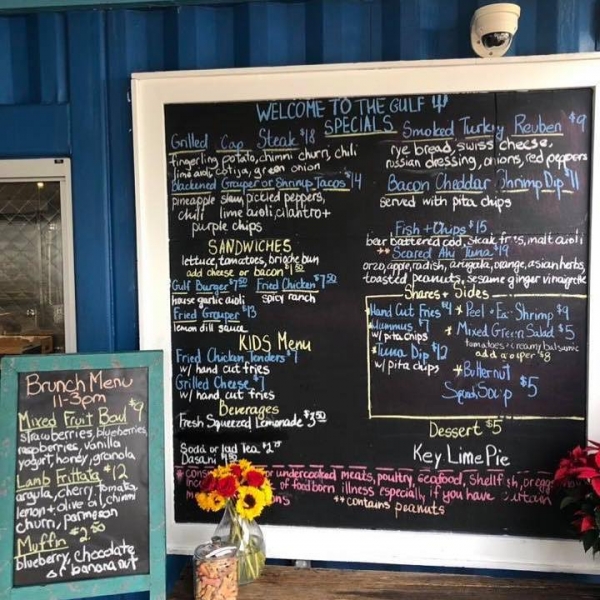 WELCOME TO THE GULF
SPECIALS
Grilled Cap Steak $18
fingerling potato, chimni churri, chili
lime aioli, cotija, green onion
Blackened Grouper or Shrimp Tacos $14
pineapple slaw, pickled peppers,
chili lime aioli, cilantro +
purple chips
SANDWICHES
lettuce, tomatoes, brioche bun
add cheese or bacon
Gulf Burger $7.50 Fried Chicken $7.50
house garlic aioli spicy ranch
Fried Grouper $13
lemon dill sauce
KIDS Menu
Fried Chicken Tenders $7
w/ hand cut fries
Grilled Cheese $7
w/ hand cut fries
Beverages
Fresh Squeezed Lemonade $3.50
Soda or Iced Tea $2.75
Dasani
Smoked Turkey Reuben $9
rye bread, swiss cheese,
russian dressing, onions, red peppers
Bacon Cheddar Shrimp Dip $11
served with pita chips
Fish + Chips $15
beer battered cod, steak fries, malt aioli
**Seared Ahi Tuna $19
orzo, apple, radish, arugula, orange, asian herbs,
toasted peanuts, sesame ginger vinaigrette
Shares + Sides
*Hand Cut Fries $4
*Hummus $7
w/ pita chips
*Tuna Dip $12
w/ pita chips
*Peel + Eat Shrimp $9
*Mixed Green Salad $5
tomatoes + creamy balsamic
add grouper $8
*Butternut
Squash Soup $5
Dessert $5
Key Lime Pie
undercooked meats, poultry, seafood, shellfish, or eggs
of food born illness especially, if you have certain
**contains peanuts
Brunch Menu
11-3pm
Mixed Fruit Bowl $9
strawberries, blueberries,
raspberries, vanilla
yogurt, honey, granola
Lamb Frittata $12
arugula, cherry tomato,
lemon + olive oil, chimni
churri, parmesan
Muffin $2.50
blueberry, chocolate
or banana nut